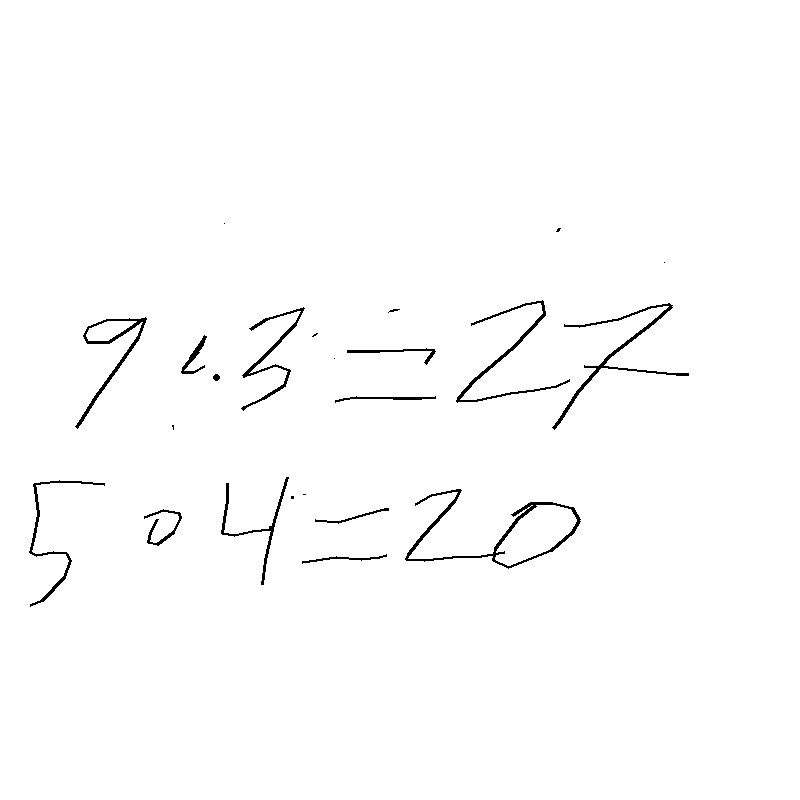 9 · 3 = 27
5 · 4 = 20